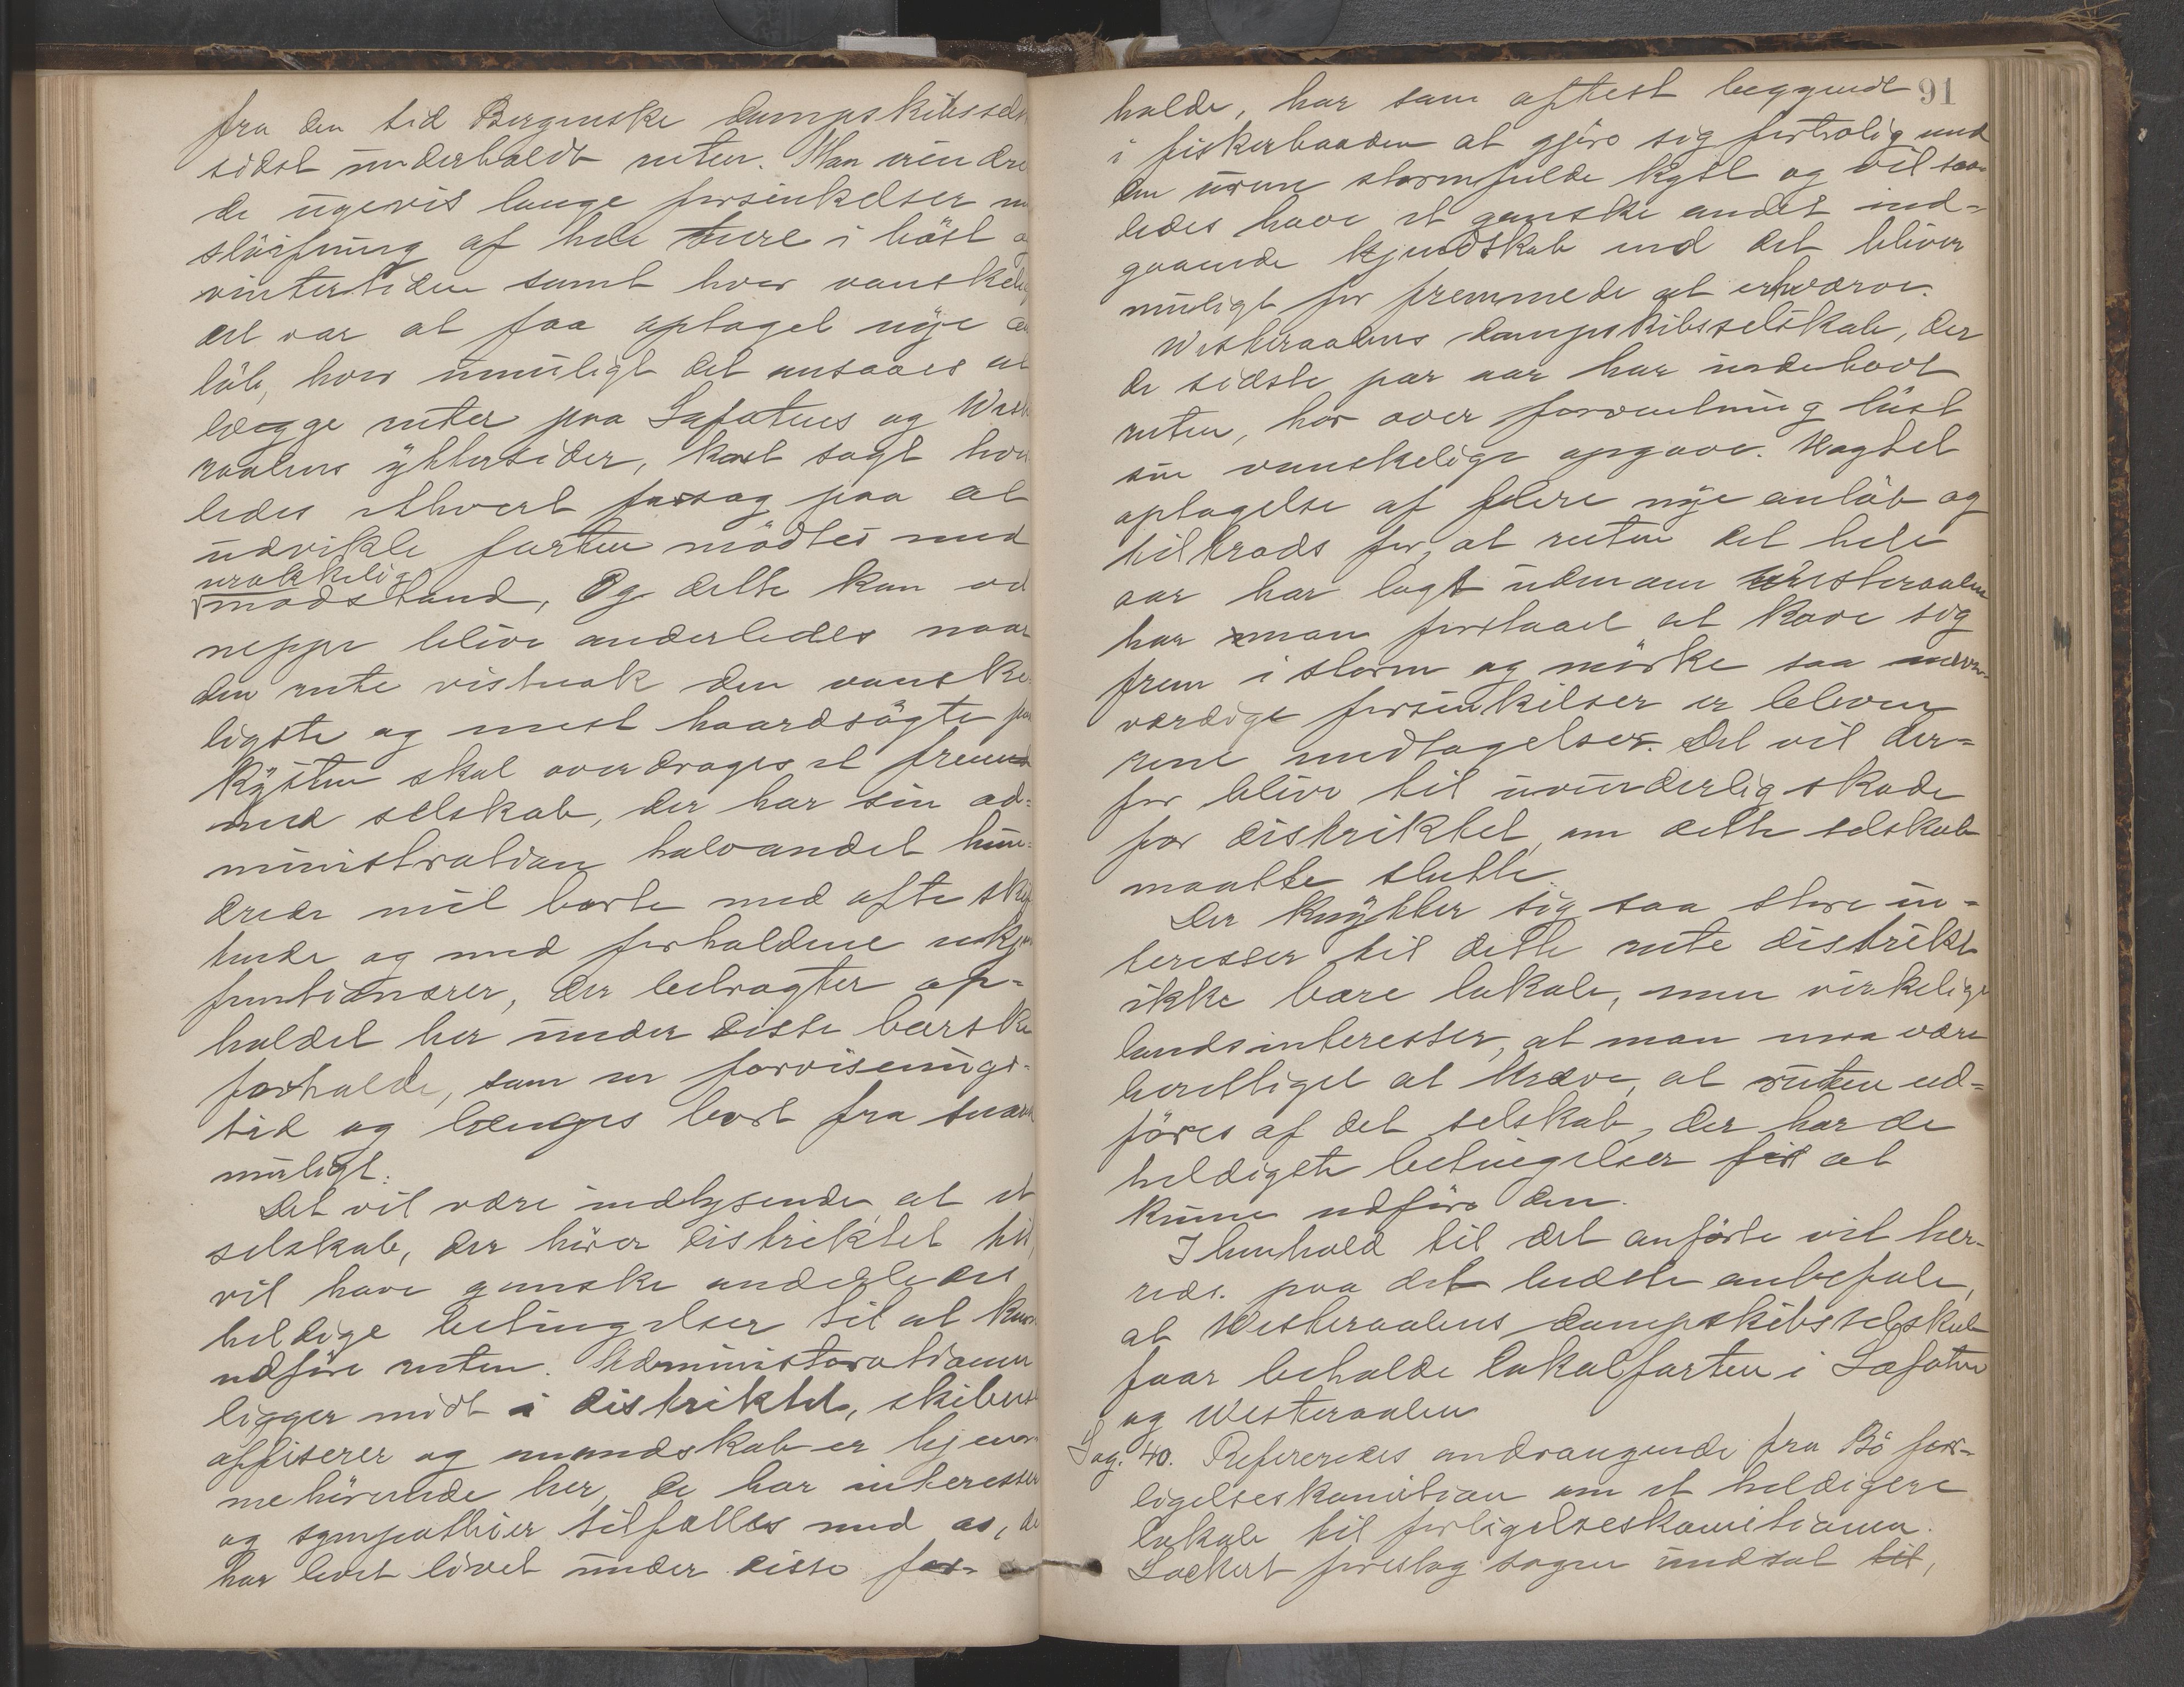 fra den tid Bergenske dampskibssels
sidst underholdt ruten. Man erindre
de ugevis lange forsinkelser
slöifning af hele ture i höst og
vintertiden samt hvor vanskelig
det var at faa optaget nye an
löb, hvor umuligt det ansaaes at
lægge ruter paa Lofotens og West
raalens yttersider, kort sagt hvor
ledes ethvert forsøg paa at
udvikle farten mödtes med
urokkelig
modstand, Og dette kan vel
neppe blive anderledes naar
den rute vistnok den vanske
ligste og mest haardsögte paa
kysten skal overdrages et frem
med selskab, der har sin ad=
ministration halvandet hun=
drede mil borte med ofte skif
tende og med forholdene ukjen
funktionærer, der betragter op=
holdet her under disse barske
forholde, som en forvisnings-
tid og længes bort fra snarest
muligt.
Det vil være indlysende, at et
selskab, der hörer distriktet til,
vil have ganske anderledes
heldige betingelser til at kun
udföre ruten. Administrationen
ligger midt i distriktet, skibenes
offiserer og mandskab er hjem
mehörende her, de har interesser
og sympathier tilfælles med os, de
har levet livet under disse for-
91
holde, har som oftest begyndt
i fiskerbaaden at gjöre sig fortrolig med
den urene stormfulde kyst og vil saa
ledes have et ganske andet ind=
gaaende kjendskab end det bliver
muligt for fremmede at erhverve.
Westeraalens dampskibsselskab, der
de sidste par aar har underholdt
ruten, har over forventning löst
sin vanskelige opgave. Uagtet
optagelse af flere nye anlöb og
tiltrods for, at ruten det hele
aar har lagt udenom Westeraalen
har man forstaaet at kave sig
frem i storm og mörke saa nævne-
værdige forsinkelser er bleven
rene undtagelser. Det vil der=
for blive til uvurderlig skade
for distriktet, om dette selskab
maatte slutte.
Der knytter sig saa store in=
teresser til dette rute distrikt
ikke bare lokale, men virkelige
landsinteresser, at man maa være
berettiget at kræve, at ruten ud=
föres af det selskab, der har de
heldigste betingelser for at
kunne udföre den.
I henhold til det anförte vil her-
reds. paa det bedste anbefale,
at Westeraalens dampskibsselskab
faar beholde lokalfarten i Lofoten
og Westeraalen
Sag. 40. Refereredes andragende fra Bö for-
ligelseskomission om et heldigere
lokale til forligelseskomitionen.
Lockert foreslog sagen undsat til,